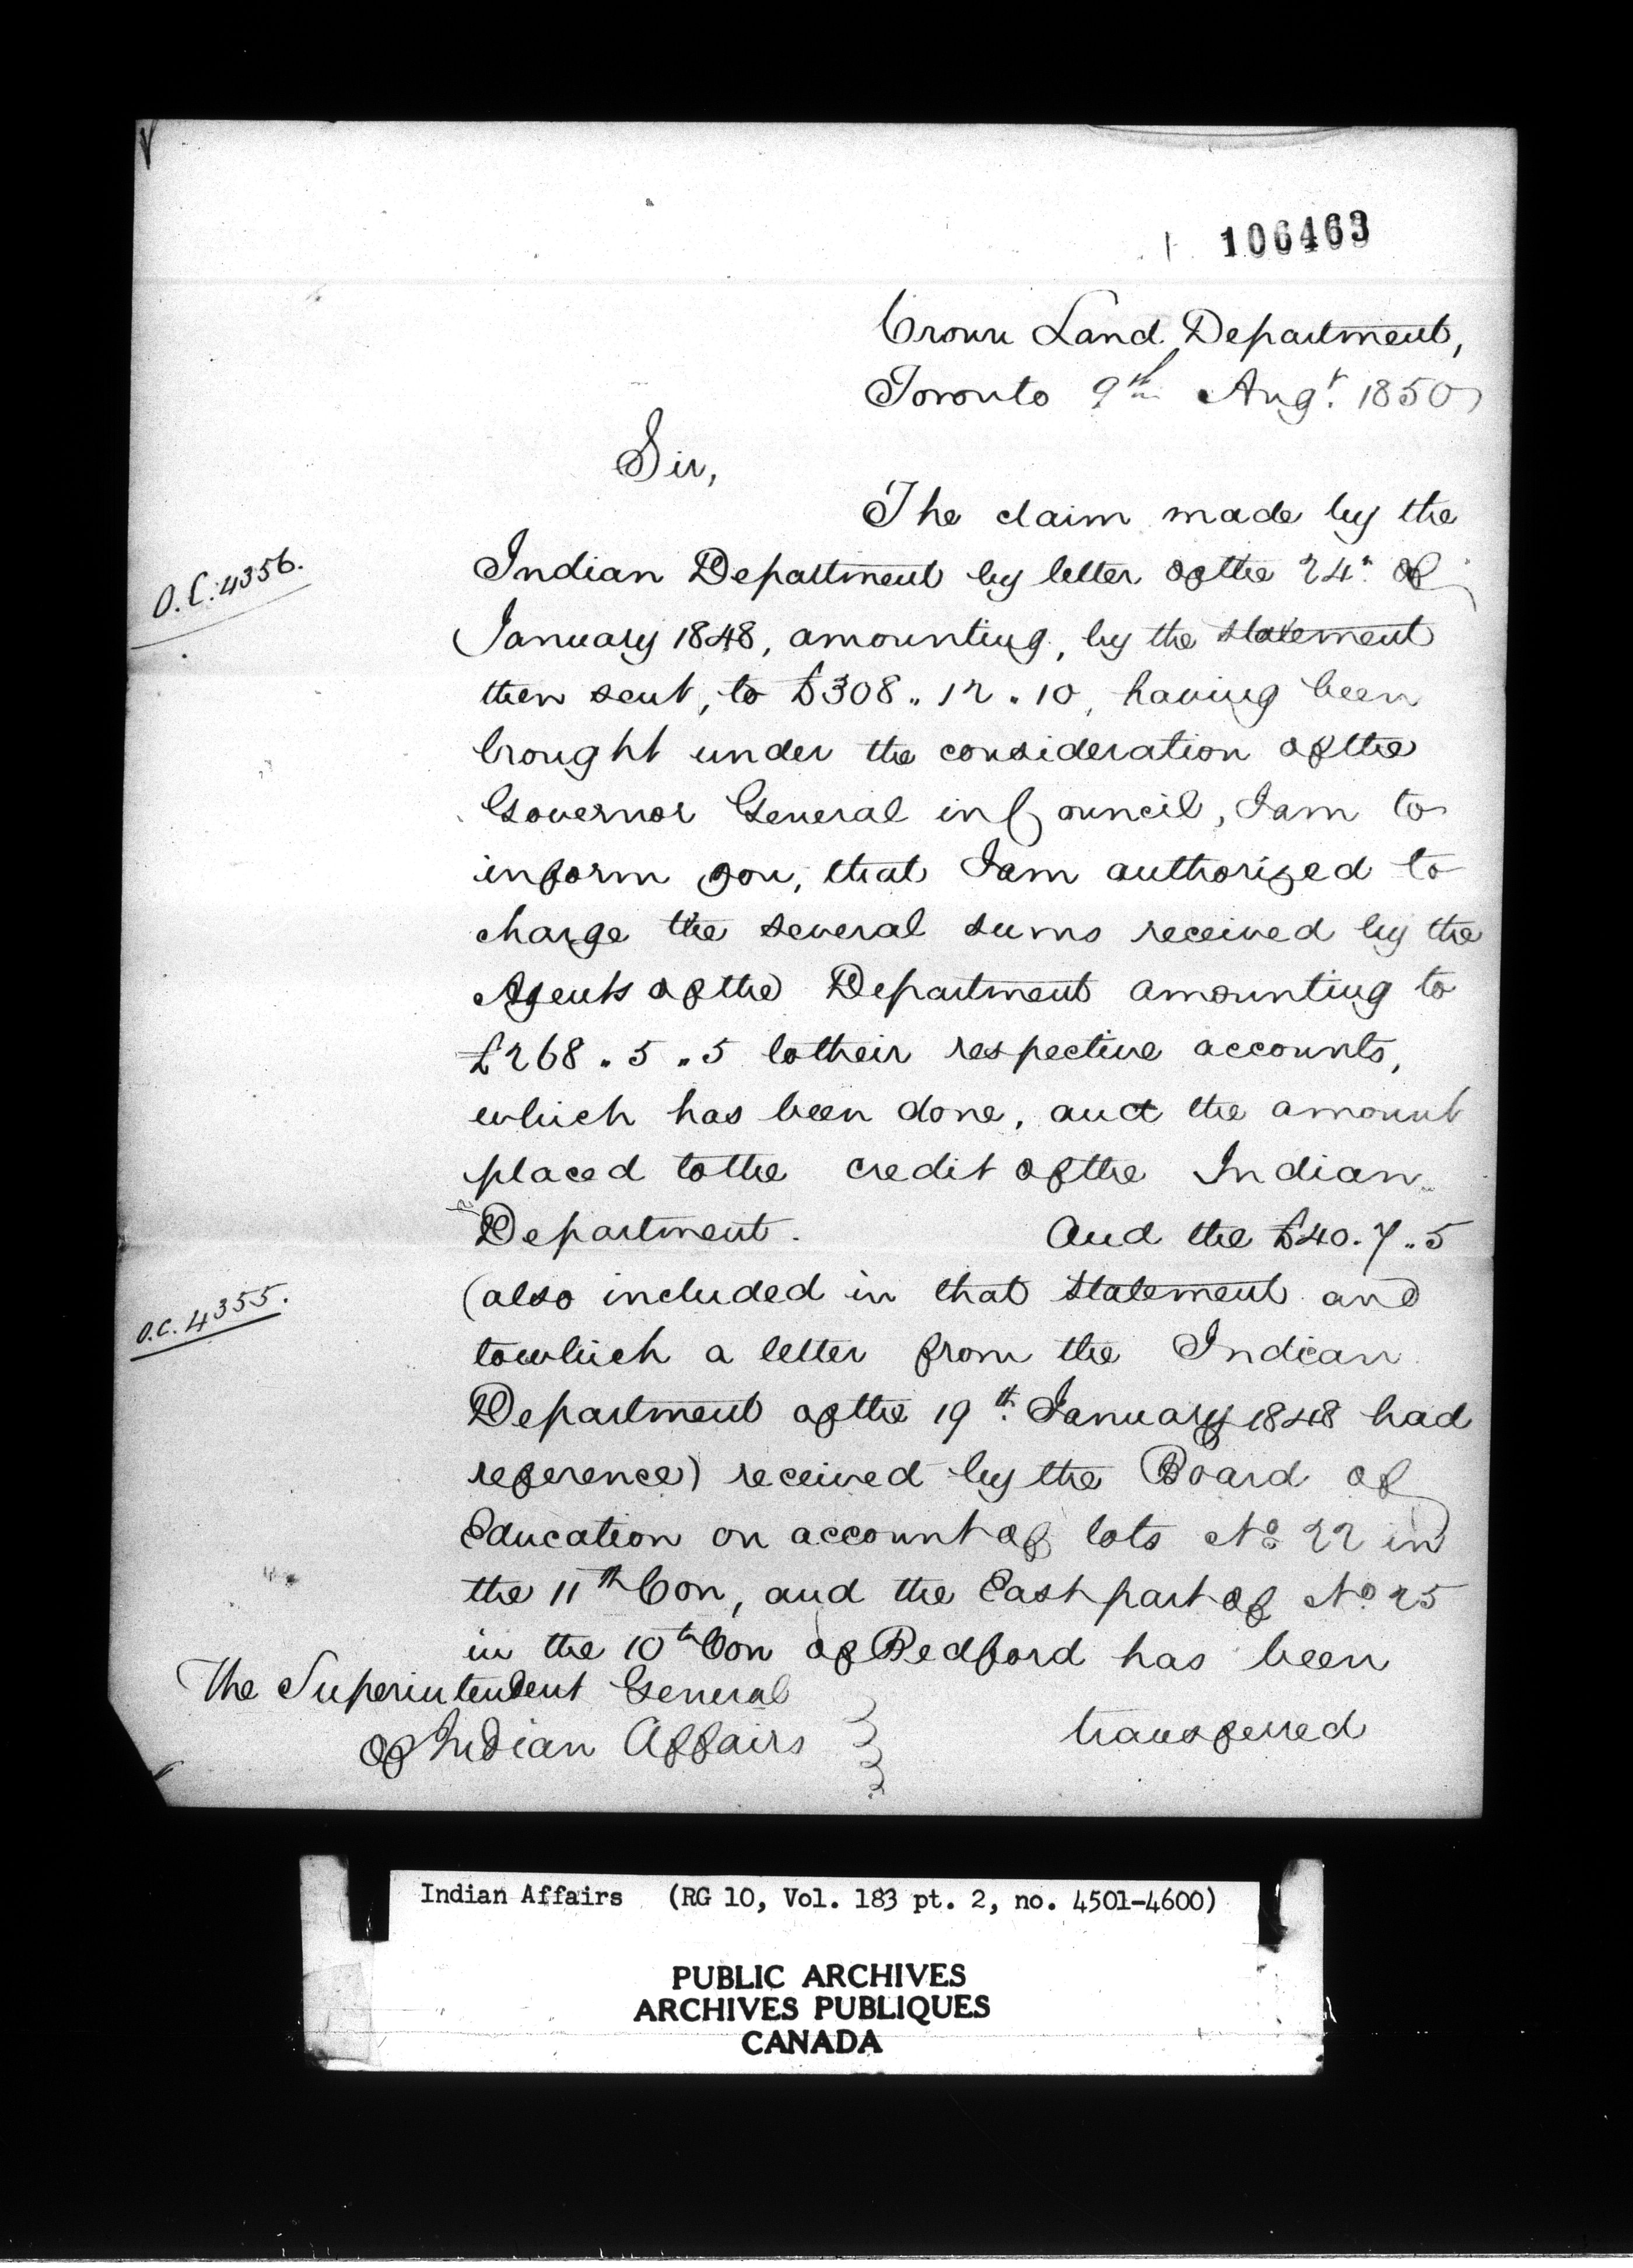 106463
Crown Land Department,
Toronto 9th Augt. 1850
Sir,
The claim made by the
O.C. 4356.
Indian Department by letter of the 24th of
January 1848, amounting, by the statement
then sent, to £308.. 12. 10, having been
brought under the consideration of the
Governor General in Council, I am to
inform you, that I am authorized to
charge the several sums received by the
Agents of the Department amounting to
£268.. 5.. 5 to their respective accounts,
which has been done, and the amount
placed to the credit of the Indian
Department. And the £40. 7.. 5
O.C. 4355.
(also included in that statement and
to which a letter from the Indian
Department of the 19th January 1848 had
reference) received by the Board of
Education on account of lots No 22 in
the 11th Con, and the East part of No 25
in the 10th Con of Bedford has been
The Superintendent General
of Indian Affairs
transferred
Indian Affairs (RG 10, Vol. 183 pt. 2, no. 4501-4600)
PUBLIC ARCHIVES
ARCHIVES PUBLIQUES
CANADA